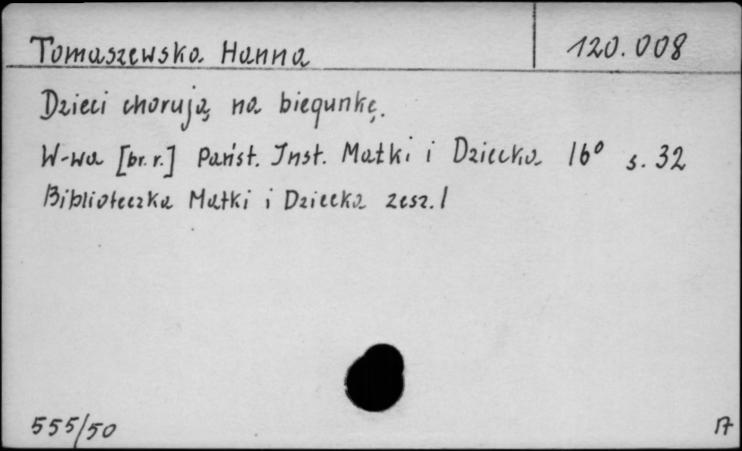 Tomaszewska Hanna 120.008
Dzieci chorują na biegunkę.
W-wa [br. r.] Państ. Inst. Matki i Dziecka 16° s. 32
Biblioteczka Matki i Dziecka zesz. 1
555/50